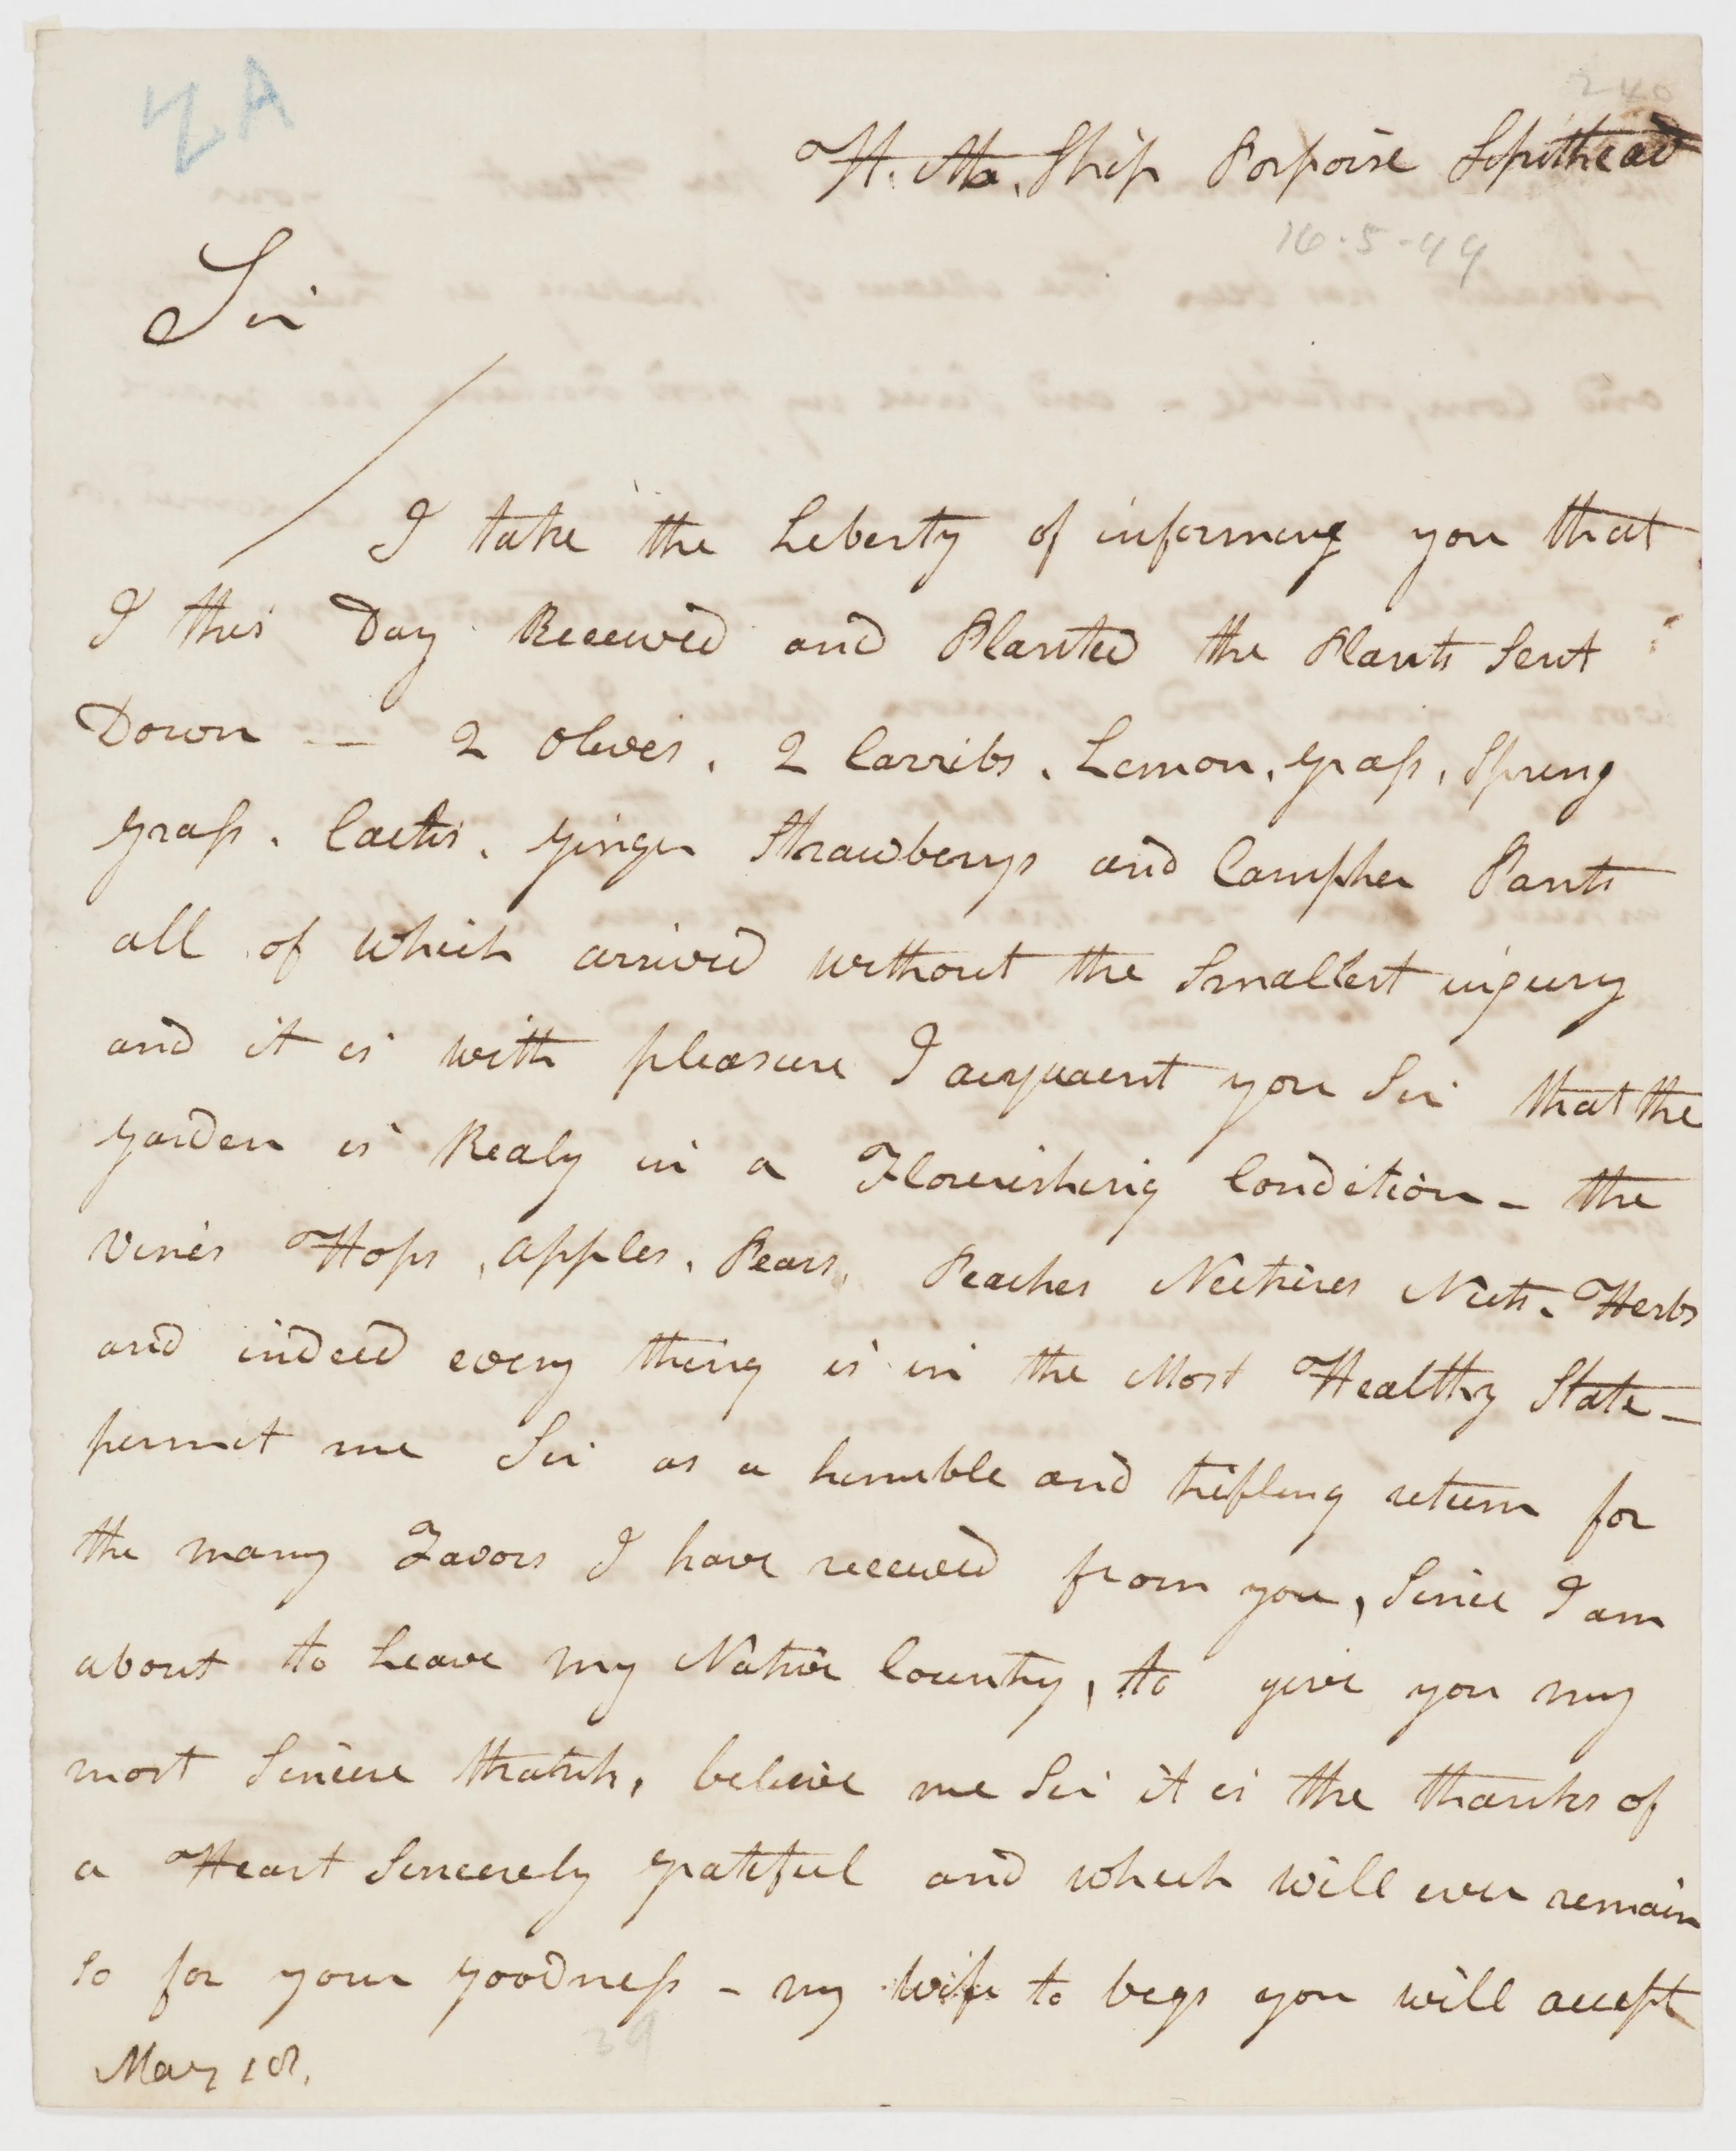 ZA
240
H. Ma. Ship Porpoise Spithead
16-5-99
Sir
I take the Liberty of informing you that
I this Day Received and Planted the Plants Sent
Down — 2 Olives, 2 Carribs, Lemon, grass, Spring
grass, Cactis, ginger Strawberys and Campher Pants
all of which arrived without the Smallest injury
and it is with pleasure I acquaent you Sir that the
garden is Realy in a Flourishing Condition – the
Vines Hops, apples, Pears, Peaches Nectrines Nuts. Herbs
and indeed every thing is in the Most Healthy State –
permit me Sir as a humble and trifling return for
the many Favors I have received from you, Since I am
about to Leave my Native Country, to give you my
most Sincere thanks, believe me Sir it is the thanks of
a Heart Sincerely grateful and which will ever remain
so for your goodness – my wife to begs you will accept
39
May 18.